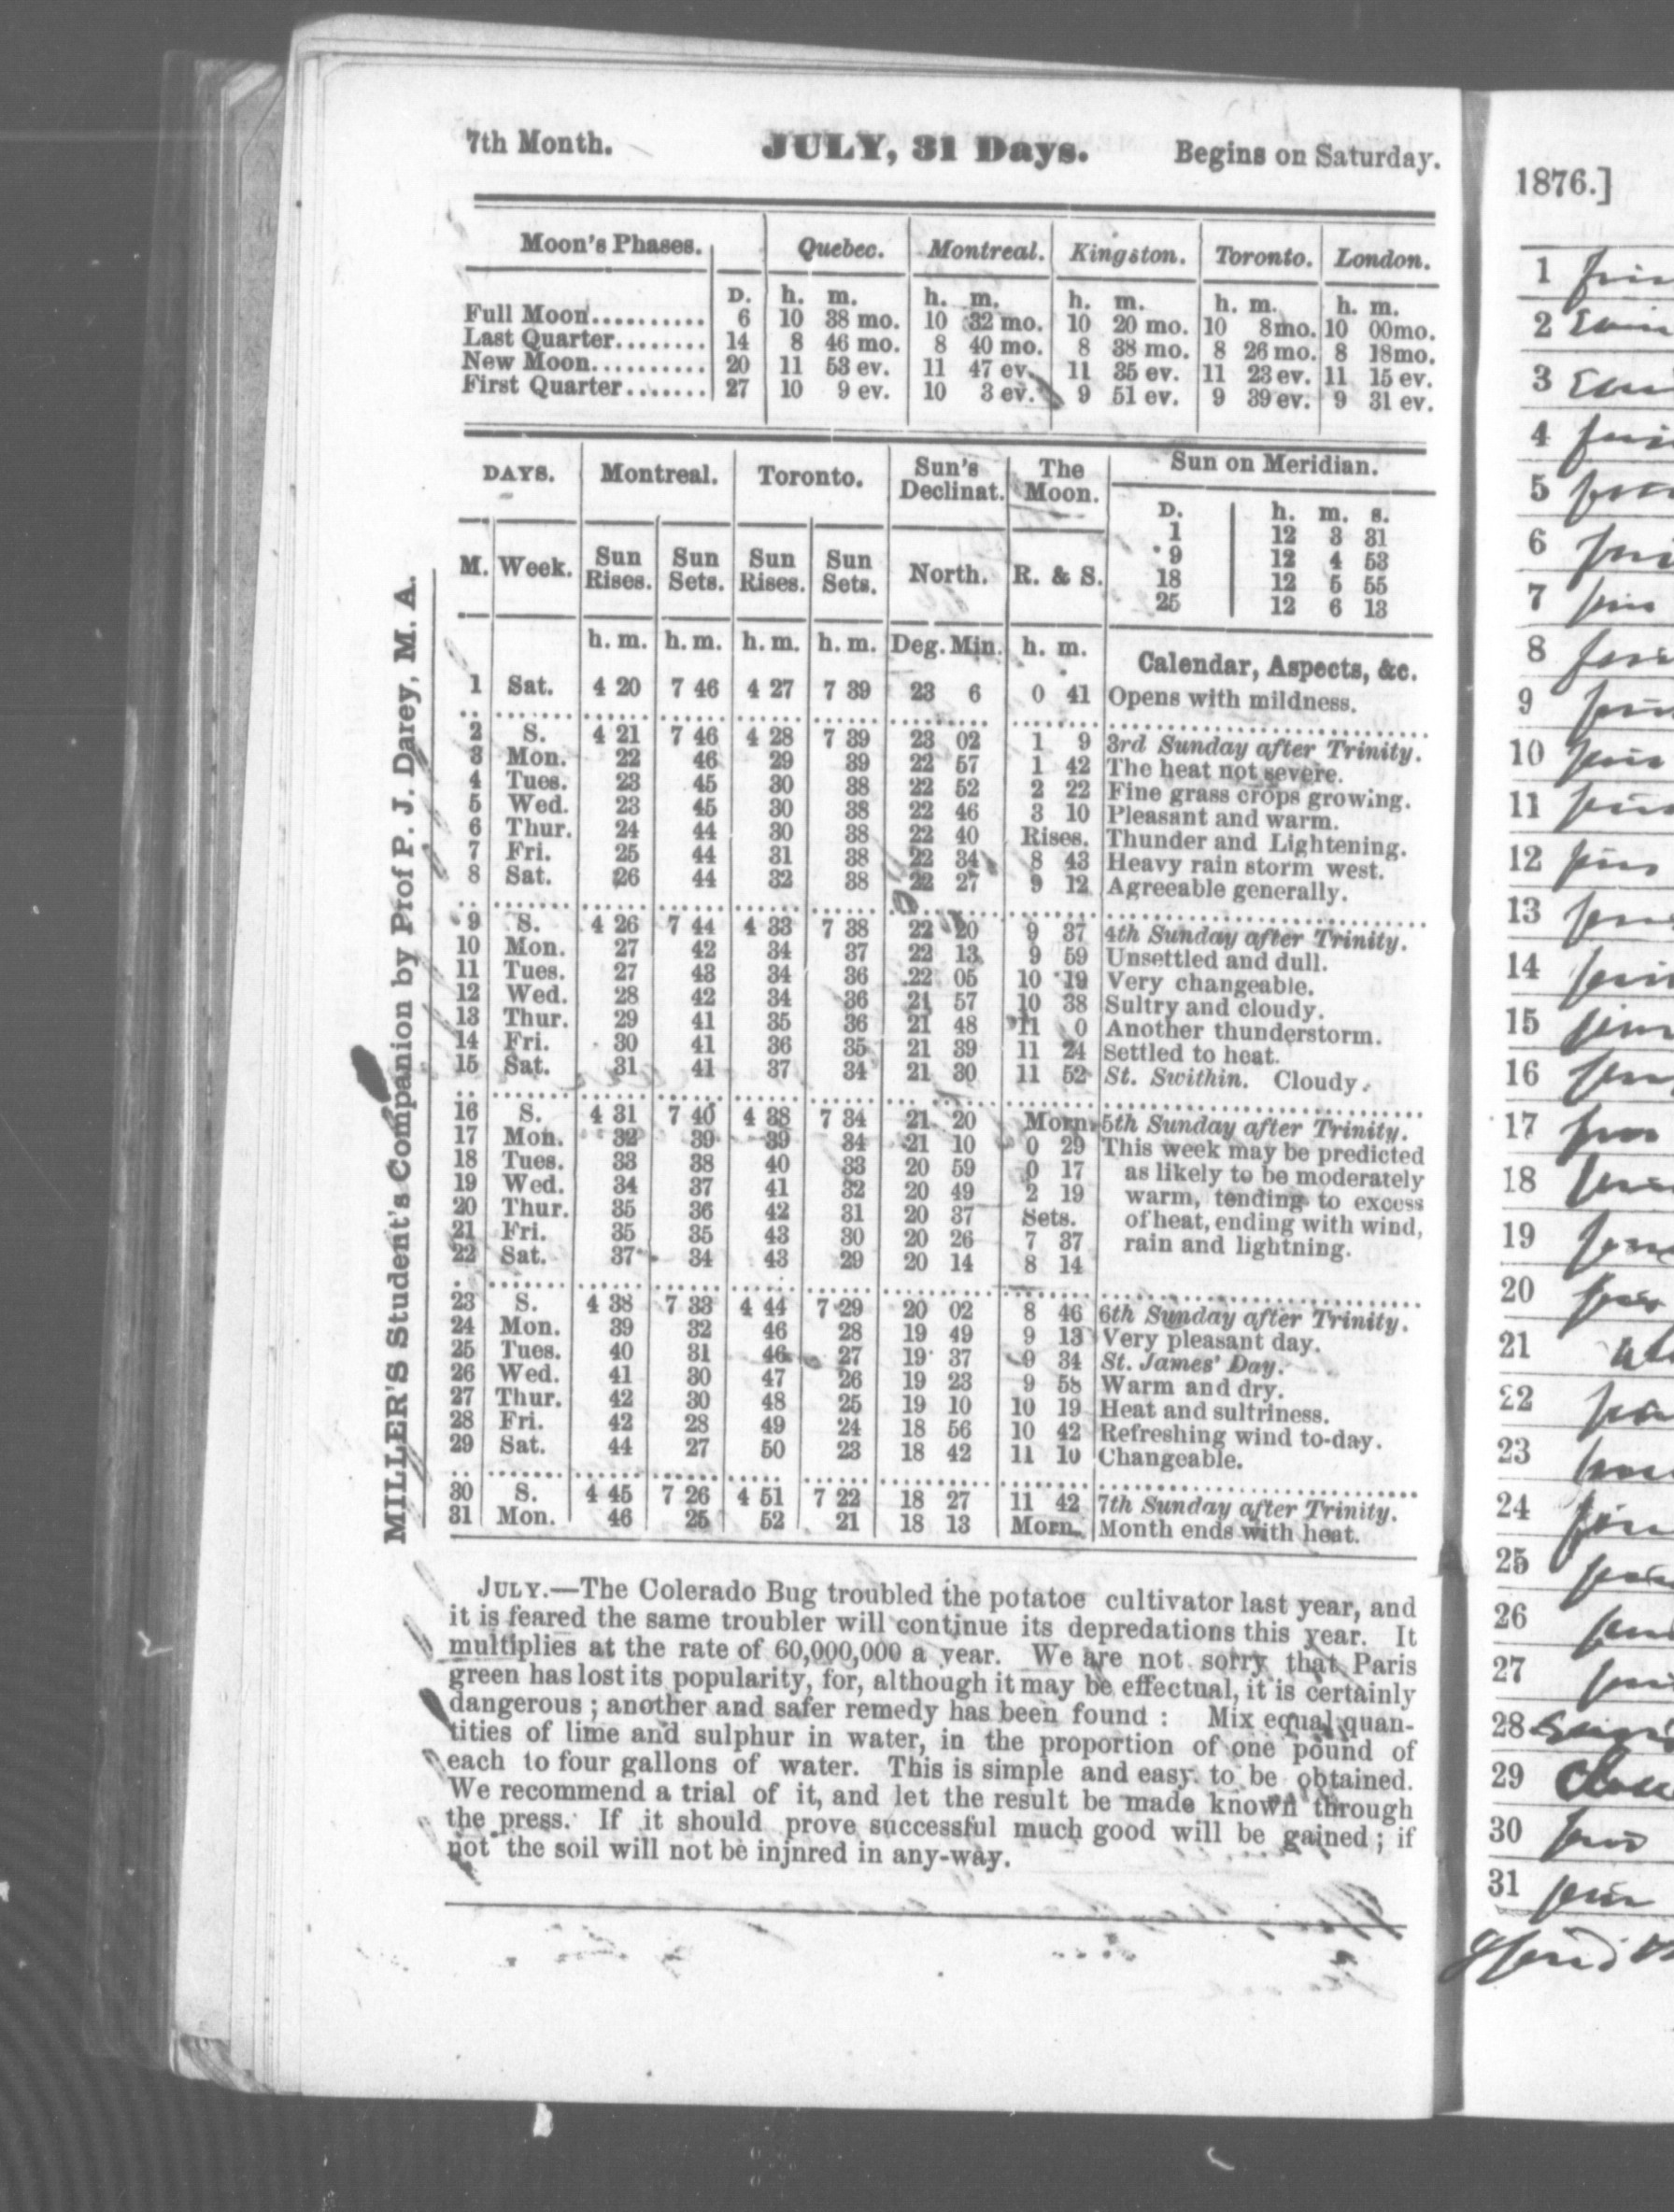 7th Month. JULY, 31 Days. Begins on Saturday.
Moon's Phases. Quebec. Montreal. Kingston. Toronto. London.
D. h. m. h. m. h. m. h. m. h. m.
Full Moon.......... 6 10 38 mo. 10 32 mo. 10 20 mo. 10 8mo. 10 00mo.
Last Quarter........ 14 8 46 mo. 8 40 mo. 8 38 mo. 8 26 mo. 8 18mo.
New Moon.......... 20 11 53 ev. 11 47 ev. 11 35 ev. 11 23 ev. 11 15 ev.
First Quarter....... 27 10 9 ev. 10 3 ev. 9 51 ev. 9 39 ev. 9 31 ev.
DAYS. Montreal. Toronto. Sun's Declinat. The Moon. Sun on Meridian.
D. h. m. s.
1 12 3 31
9 12 4 53
18 12 5 55
25 12 6 13
M. Week. Sun Rises. Sun Sets. Sun Rises. Sun Sets. North. R. & S.
h. m. h. m. h. m. h. m. Deg. Min. h. m. Calendar, Aspects, &c.
1 Sat. 4 20 7 46 4 27 7 39 23 6 0 41 Opens with mildness.
2 S. 4 21 7 46 4 28 7 39 23 02 1 9 3rd Sunday after Trinity.
3 Mon. 22 46 29 39 22 57 1 42 The heat not severe.
4 Tues. 23 45 30 38 22 52 2 22 Fine grass crops growing.
5 Wed. 23 45 30 38 22 46 3 10 Pleasant and warm.
6 Thur. 24 44 30 38 22 40 Rises. Thunder and Lightening.
7 Fri. 25 44 31 38 22 34 8 43 Heavy rain storm west.
8 Sat. 26 44 32 38 22 27 9 12 Agreeable generally.
9 S. 4 26 7 44 4 33 7 38 22 20 9 37 4th Sunday after Trinity.
10 Mon. 27 42 34 37 22 13 9 59 Unsettled and dull.
11 Tues. 27 43 34 36 22 05 10 19 Very changeable.
12 Wed. 28 42 34 36 21 57 10 38 Sultry and cloudy.
13 Thur. 29 41 35 36 21 48 11 0 Another thunderstorm.
14 Fri. 30 41 36 35 21 39 11 24 Settled to heat.
15 Sat. 31 41 37 34 21 30 11 52 St. Swithin. Cloudy.
16 S. 4 31 7 40 4 38 7 34 21 20 Morn. 5th Sunday after Trinity.
17 Mon. 32 39 39 34 21 10 0 29 This week may be predicted
18 Tues. 33 38 40 33 20 59 0 17 as likely to be moderately
19 Wed. 34 37 41 32 20 49 2 19 warm, tending to excess
20 Thur. 35 36 42 31 20 37 Sets. of heat, ending with wind,
21 Fri. 35 35 43 30 20 26 7 37 rain and lightning.
22 Sat. 37 34 43 29 20 14 8 14
23 S. 4 38 7 33 4 44 7 29 20 02 8 46 6th Sunday after Trinity.
24 Mon. 39 32 46 28 19 49 9 13 Very pleasant day.
25 Tues. 40 31 46 27 19 37 9 34 St. James' Day.
26 Wed. 41 30 47 26 19 23 9 58 Warm and dry.
27 Thur. 42 30 48 25 19 10 10 19 Heat and sultriness.
28 Fri. 42 28 49 24 18 56 10 42 Refreshing wind to-day.
29 Sat. 44 27 50 23 18 42 11 10 Changeable.
30 S. 4 45 7 26 4 51 7 22 18 27 11 42 7th Sunday after Trinity.
31 Mon. 46 25 52 21 18 13 Morn. Month ends with heat.
JULY.—The Colerado Bug troubled the potatoe cultivator last year, and
it is feared the same troubler will continue its depredations this year. It
multiplies at the rate of 60,000,000 a year. We are not sorry that Paris
green has lost its popularity, for, although it may be effectual, it is certainly
dangerous ; another and safer remedy has been found : Mix equal quan-
tities of lime and sulphur in water, in the proportion of one pound of
each to four gallons of water. This is simple and easy to be obtained.
We recommend a trial of it, and let the result be made known through
the press. If it should prove successful much good will be gained ; if
not the soil will not be injnred in any-way.
MILLER'S Student's Companion by Prof P. J. Darey, M. A.
1876.]
1
2
3
4
5
6
7
8
9
10
11
12
13
14
15
16
17
18
19
20
21
22
23
24
25
26
27
28
29
30
31